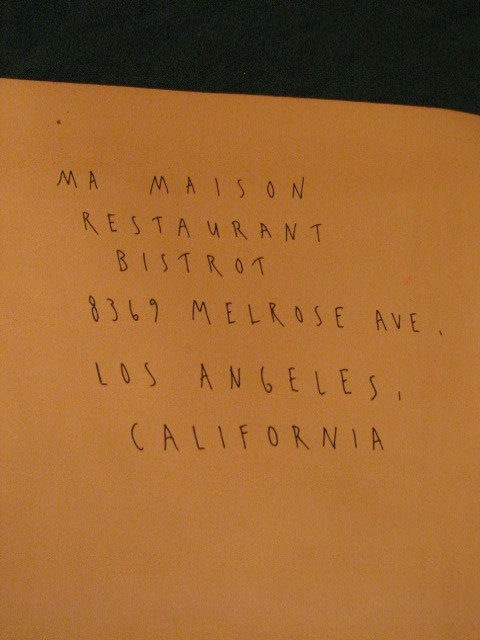 MA MAISON
RESTAURANT
BISTROT
8369 MELROSE AVE.
LOS ANGELES,
CALIFORNIA